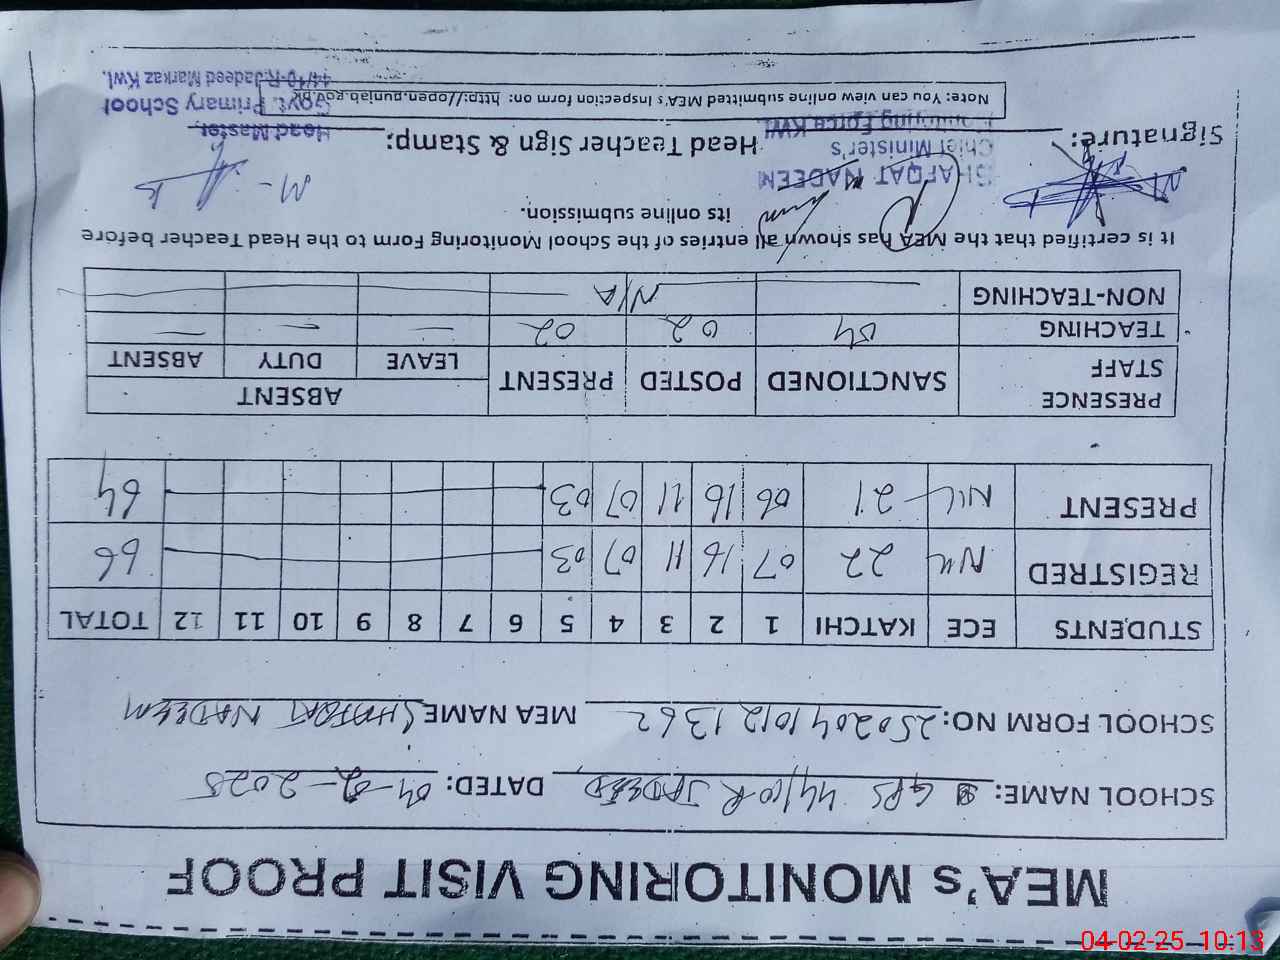 MEA's MONITORING VISIT PROOF
SCHOOL NAME: GPS 44/10R JADEED DATED: 04-2-2025
SCHOOL FORM NO: 25020410121362 MEA NAME SHAFQAT NADEEM
STUDENTS ECE KATCHI 1 2 3 4 5 6 7 8 9 10 11 12 TOTAL
REGISTRED NIL 22 07 16 11 07 03 66
PRESENT NIL 21 06 16 11 07 03 64
PRESENCE STAFF SANCTIONED POSTED PRESENT ABSENT
LEAVE DUTY ABSENT
TEACHING 04 02 02 — — —
NON-TEACHING N/A
It is certified that the MEA has shown all entries of the School Monitoring Form to the Head Teacher before
its online submission.
SHAFQAT NADEEM
Chief Minister's
Monitoring Force KWL
Signature: Head Teacher Sign & Stamp:
Head Master
Govt. Primary School
44/10-R Jadeed Markaz Kwl.
Note: You can view online submitted MEA's Inspection form on: http://open.punjab.gov.pk
04-02-25 10:13